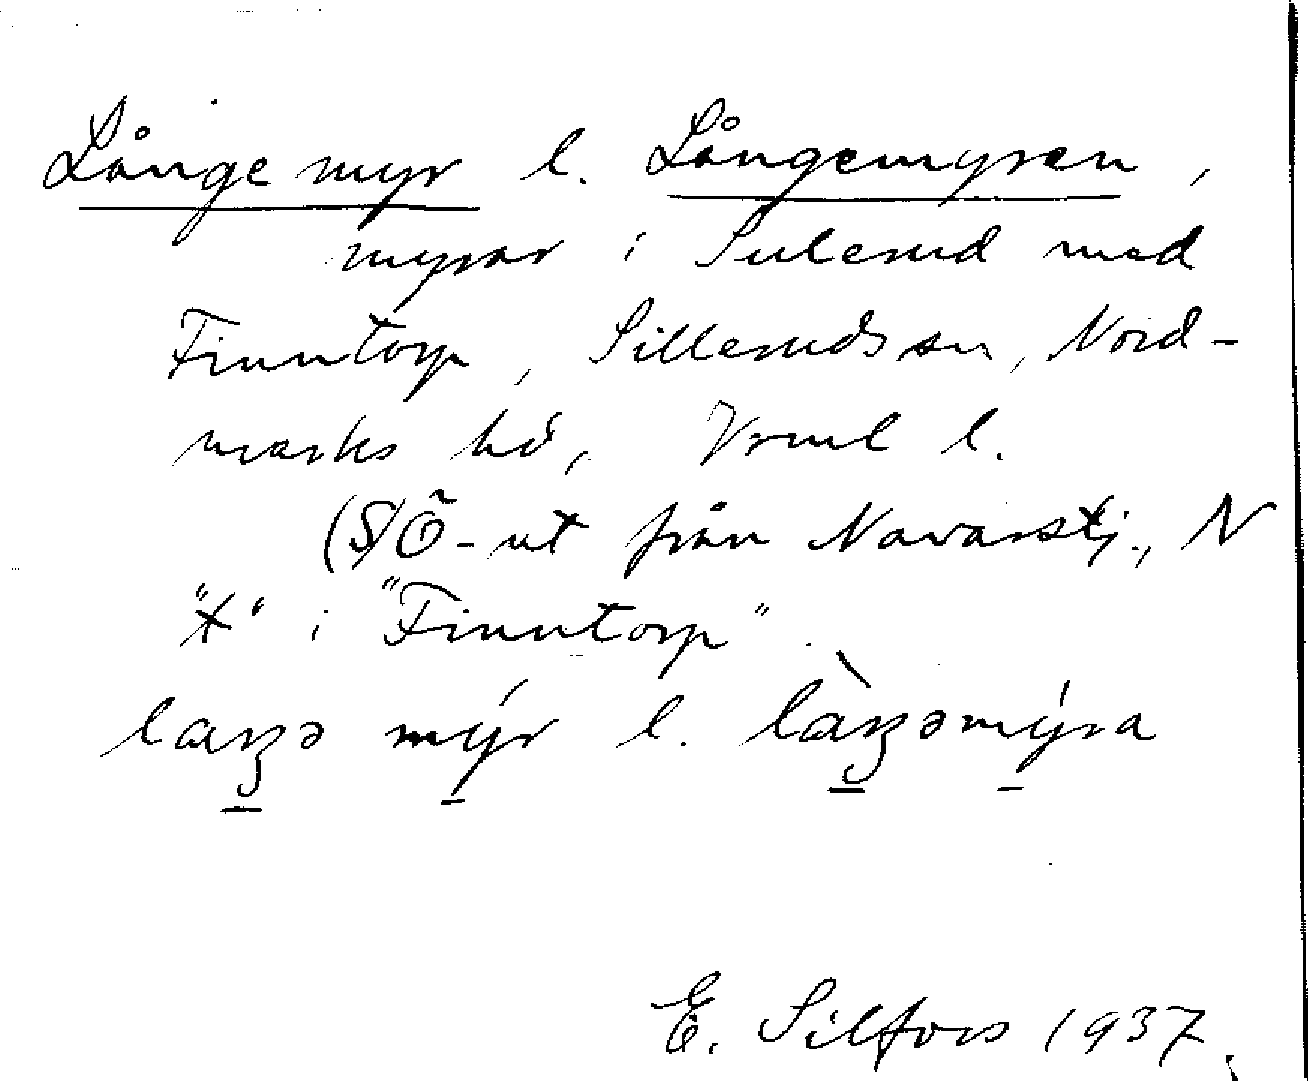 Långe myr l. Långemyren,
myrar i Sulerud med
Finntorp, Sillerudssn, Nord-
marks hd, Vrml l.
(S)Ö-ut från Navarstj., N
"t" i "Finntorp".
mýr l.
E. Silfors 1937.